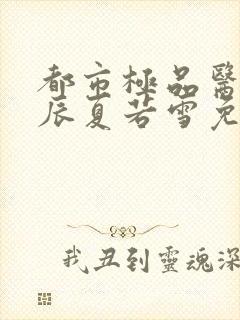 都市極品醫
辰夏若雪免
我丑到靈魂深